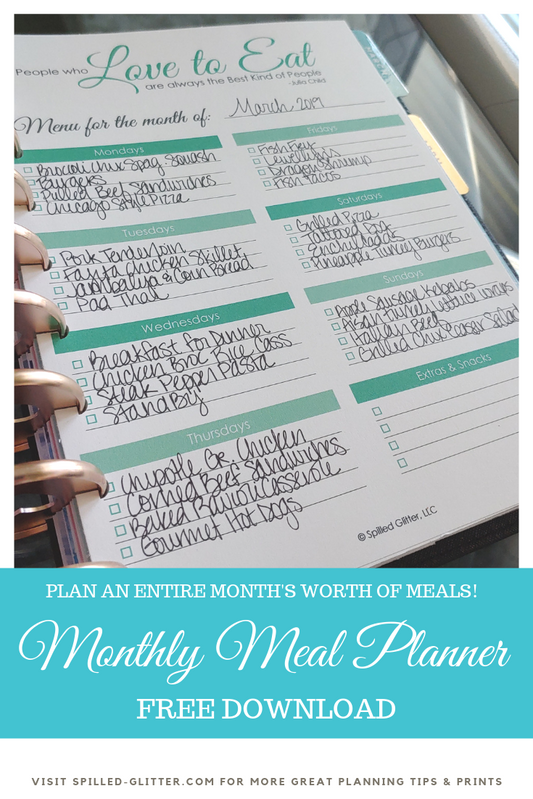 People who Love to Eat
are always the Best Kind of People
- Julia Child
Menu for the month of: March 2019
Mondays
Brocoli Chix Spag Squash
Burgers
Pulled Beef Sandwiches
Chicago Style Pizza
Tuesdays
Pork Tenderloin
Fajita Chicken Skillet
Jambalaya & Corn Bread
Pad Thai
Wednesdays
Breakfast for Dinner
Chicken Broc Rice Cass
Steak Pepper Pasta
Stand By
Thursdays
Chipotle Gr. Chicken
Corned Beef Sandwiches
Baked Ravioli Casserole
Gourmet Hot Dogs
Fridays
Fish Fry
Dragon Shrimp
Fish Tacos
Saturdays
Grilled Pizza
Enchiladas
Pineapple Turkey Burgers
Sundays
Apple Sausage Kabobs
Asian Turkey Lettuce Wraps
Italian Beef
Grilled Chix Caesar Salad
Extras & Snacks
© Spilled Glitter, LLC
PLAN AN ENTIRE MONTH'S WORTH OF MEALS!
Monthly Meal Planner
FREE DOWNLOAD
VISIT SPILLED-GLITTER.COM FOR MORE GREAT PLANNING TIPS & PRINTS